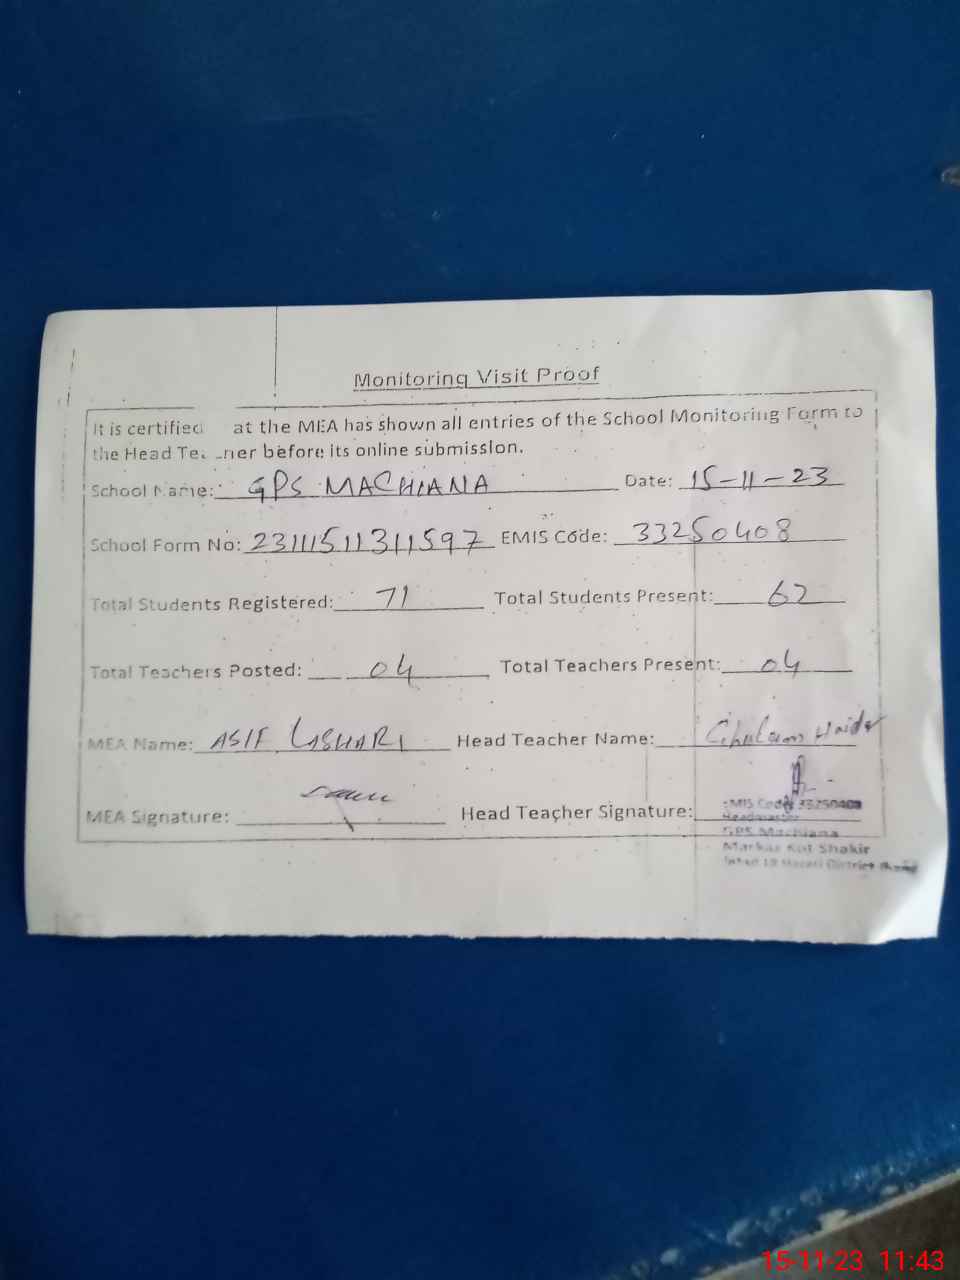 Monitoring Visit Proof
It is certified at the MEA has shown all entries of the School Monitoring Form to
the Head before its online submission.
School Name: GPS MACHIANA Date: 15-11-23
School Form No: 23111511311597 EMIS Code: 33250408
Total Students Registered: 71 Total Students Present: 62
Total Teachers Posted: 04 Total Teachers Present: 04
MEA Name: ASIF LASHARI Head Teacher Name: Ghulam Haider
MEA Signature: Head Teacher Signature:
EMIS Code 33250408
Headmaster
GPS Machiana
Markaz Kot Shakir
District
15-11-23 11:43